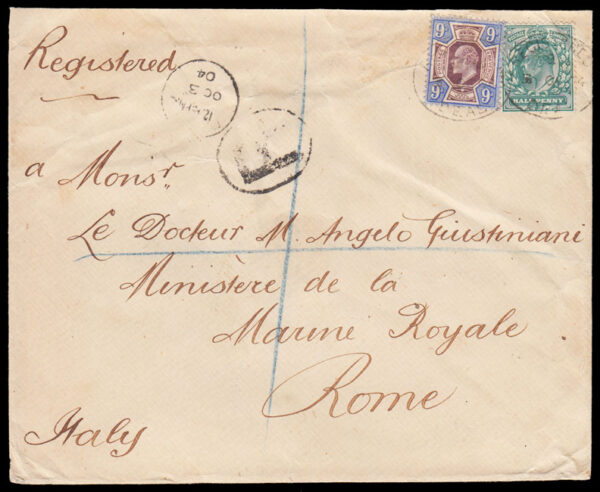 Registered
12.15 PM
OC 3
04
R
9d 9d
9d 9d
HALF PENNY
a Monsr.
Le Docteur M. Angelo Giustiniani
Ministère de la
Marine Royale
Rome
Italy